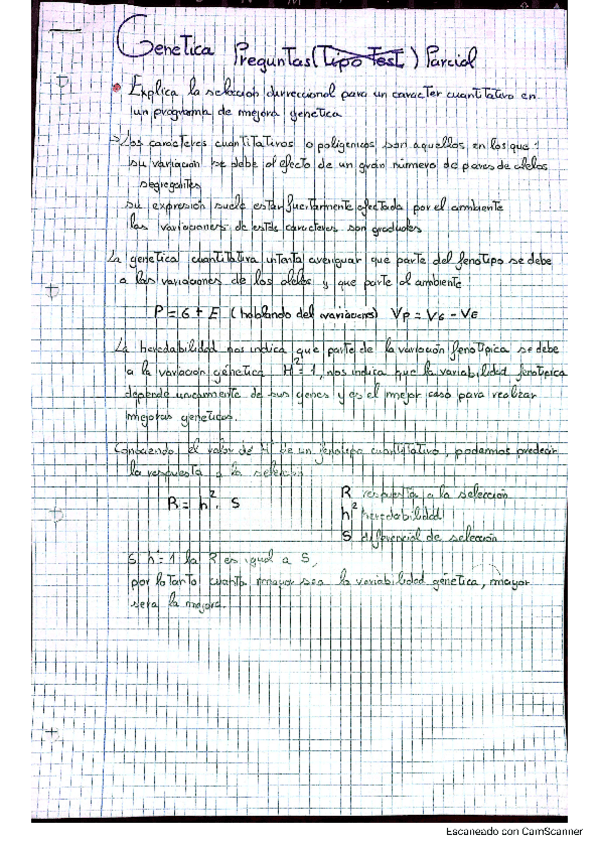 Genetica Preguntas (Tipo Test) Parcial
Explica la selección direccional para un caracter cuantitativo en
un programa de mejora genetica
Los caracteres cuantitativos o poligenicos son aquellos en los que
su variación se debe al efecto de un gran número de pares de alelos
segregantes
su expresión suele estar fuertemente afectada por el ambiente
las variaciones de estos caracteres son graduales
La genetica cuantitativa intenta averiguar que parte del fenotipo se debe
a las variaciones de los alelos y que parte al ambiente
P = G + E (hablando del varianzas) Vp = VG - VE
La heredabilidad nos indica que parte de la variación fenotipica se debe
a la variación génetica H² = 1, nos indica que la variabilidad fenotipica
depende unicamente de sus genes y es el mejor caso para realizar
mejoras geneticas.
Conociendo el valor de H² de un fenotipo cuantitativo, podemos predecir
la respuesta a la selección
R = h² . S
R respuesta a la selección
h² heredabilidad
S diferencial de selección
Si h² = 1 la R es igual a S,
por lo tanto cuanto mayor sea la variabilidad génetica, mayor
sera la mejora.
Escaneado con CamScanner